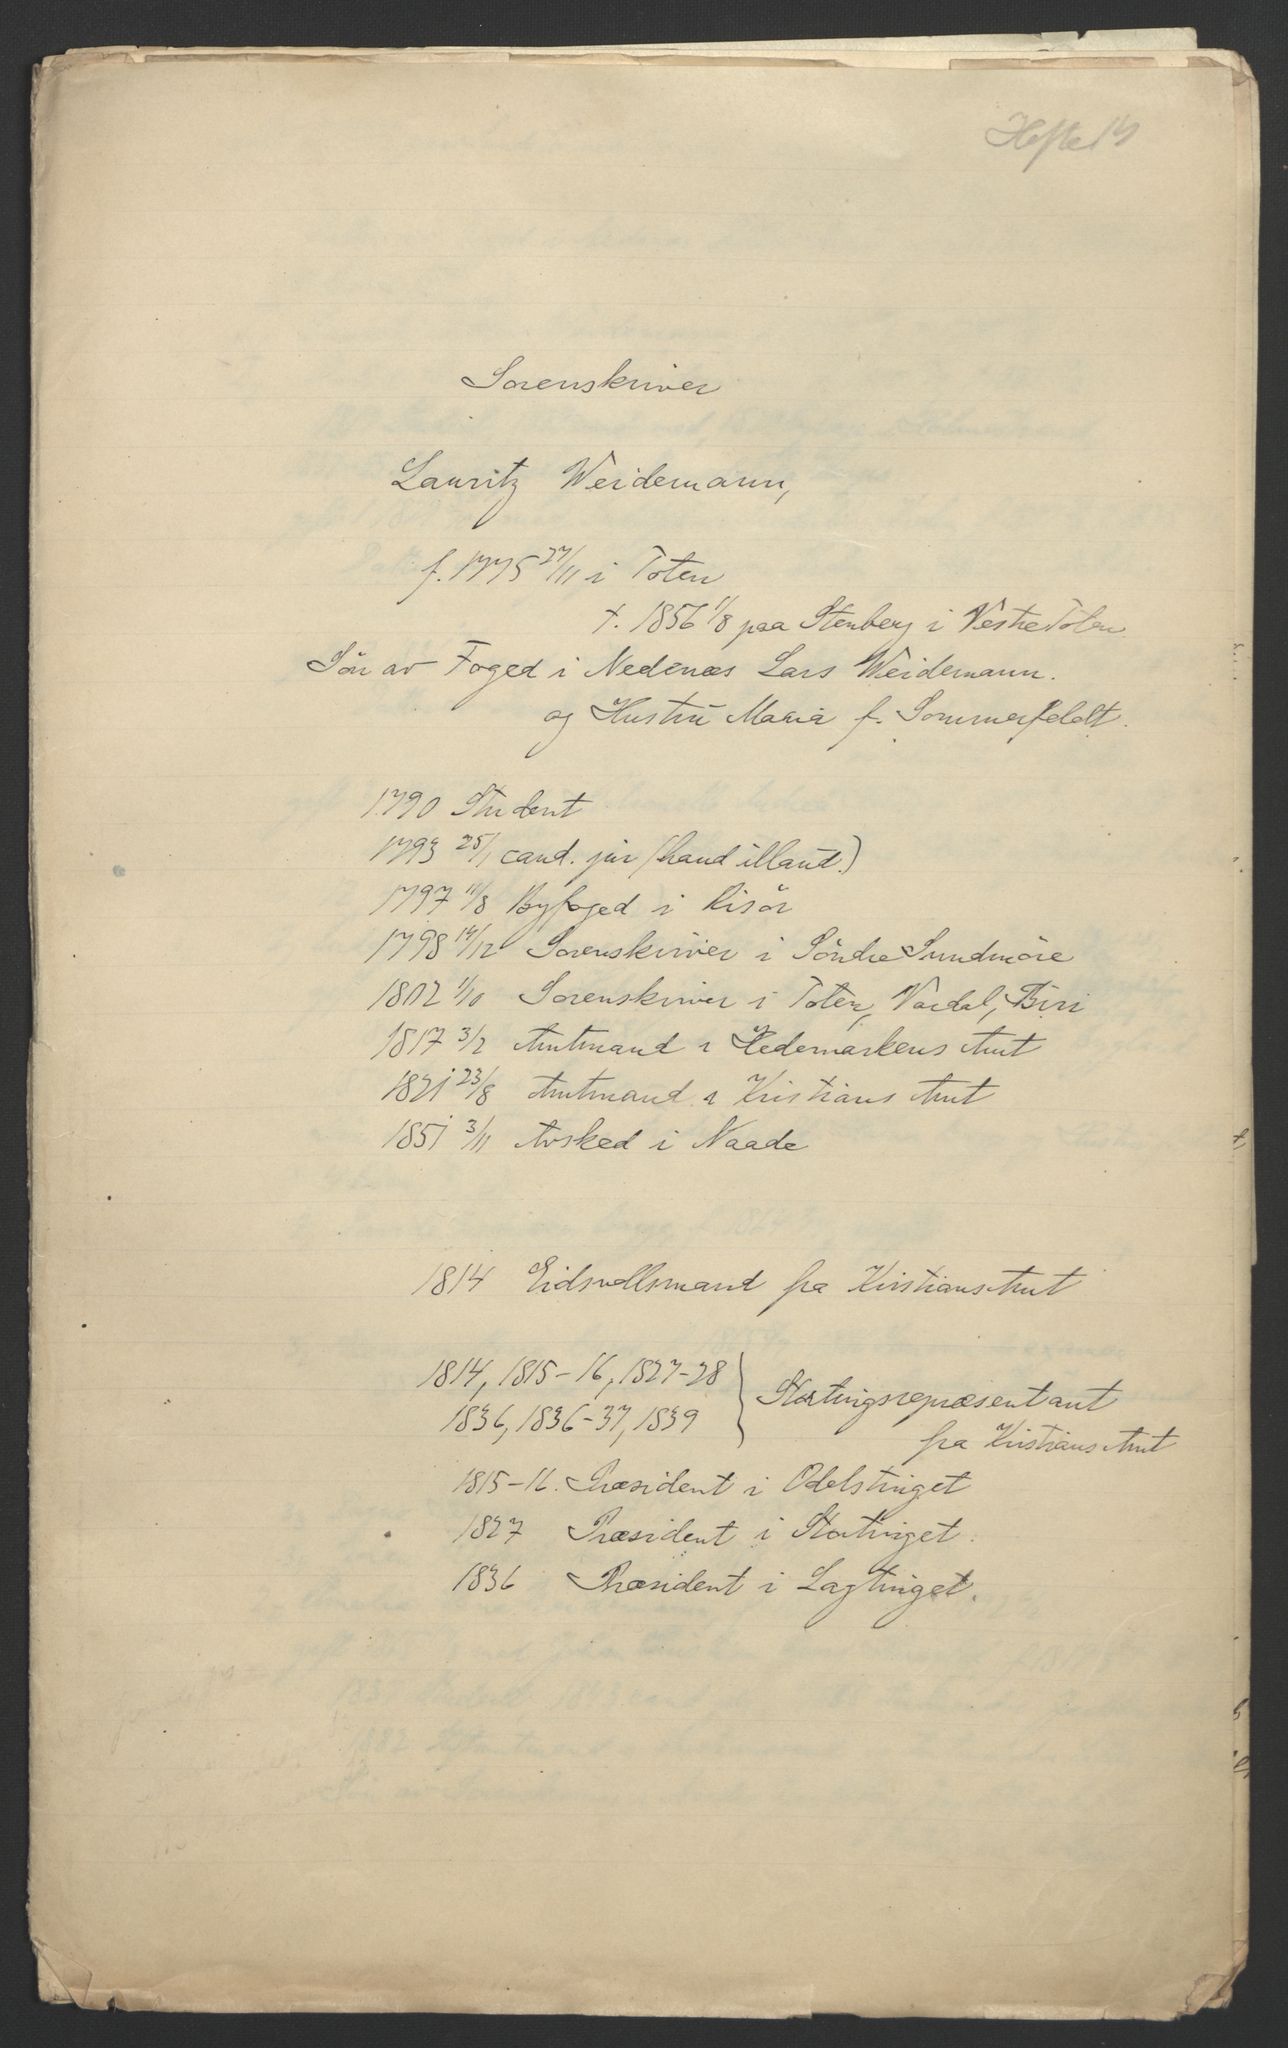 Hefte 14
Sorenskriver
Lauritz Weidemann,
f. 1775 27/11 i Toten
†. 1856 1/8 paa Stenberg i Vestre Toten
Sön av Foged i Nedenæs Lars Weidemann.
og Hustru Maria f. Sommerfeldt.
1790 Student
1793 25/1 cand. jur (haud illaud.)
1797 11/8 Byfoged i Risör
1798 14/12 Sorenskriver i Söndre Sundmöre
1802 1/10 Sorenskriver i Toten, Vardal, Biri
1817 3/2 Amtmand i Hedemarkens Amt
1821 23/8 Amtmand i Kristians Amt
1851 3/11 Avsked i Naade
1814 Eidsvollsmand fra Kristians Amt
1814, 1815-16, 1827-28
1836, 1836-37, 1839
Stortingsrepræsentant
fra Kristians Amt
1815-16. Præsident i Odelstinget
1827 Præsident i Stortinget.
1836 Præsident i Lagtinget.